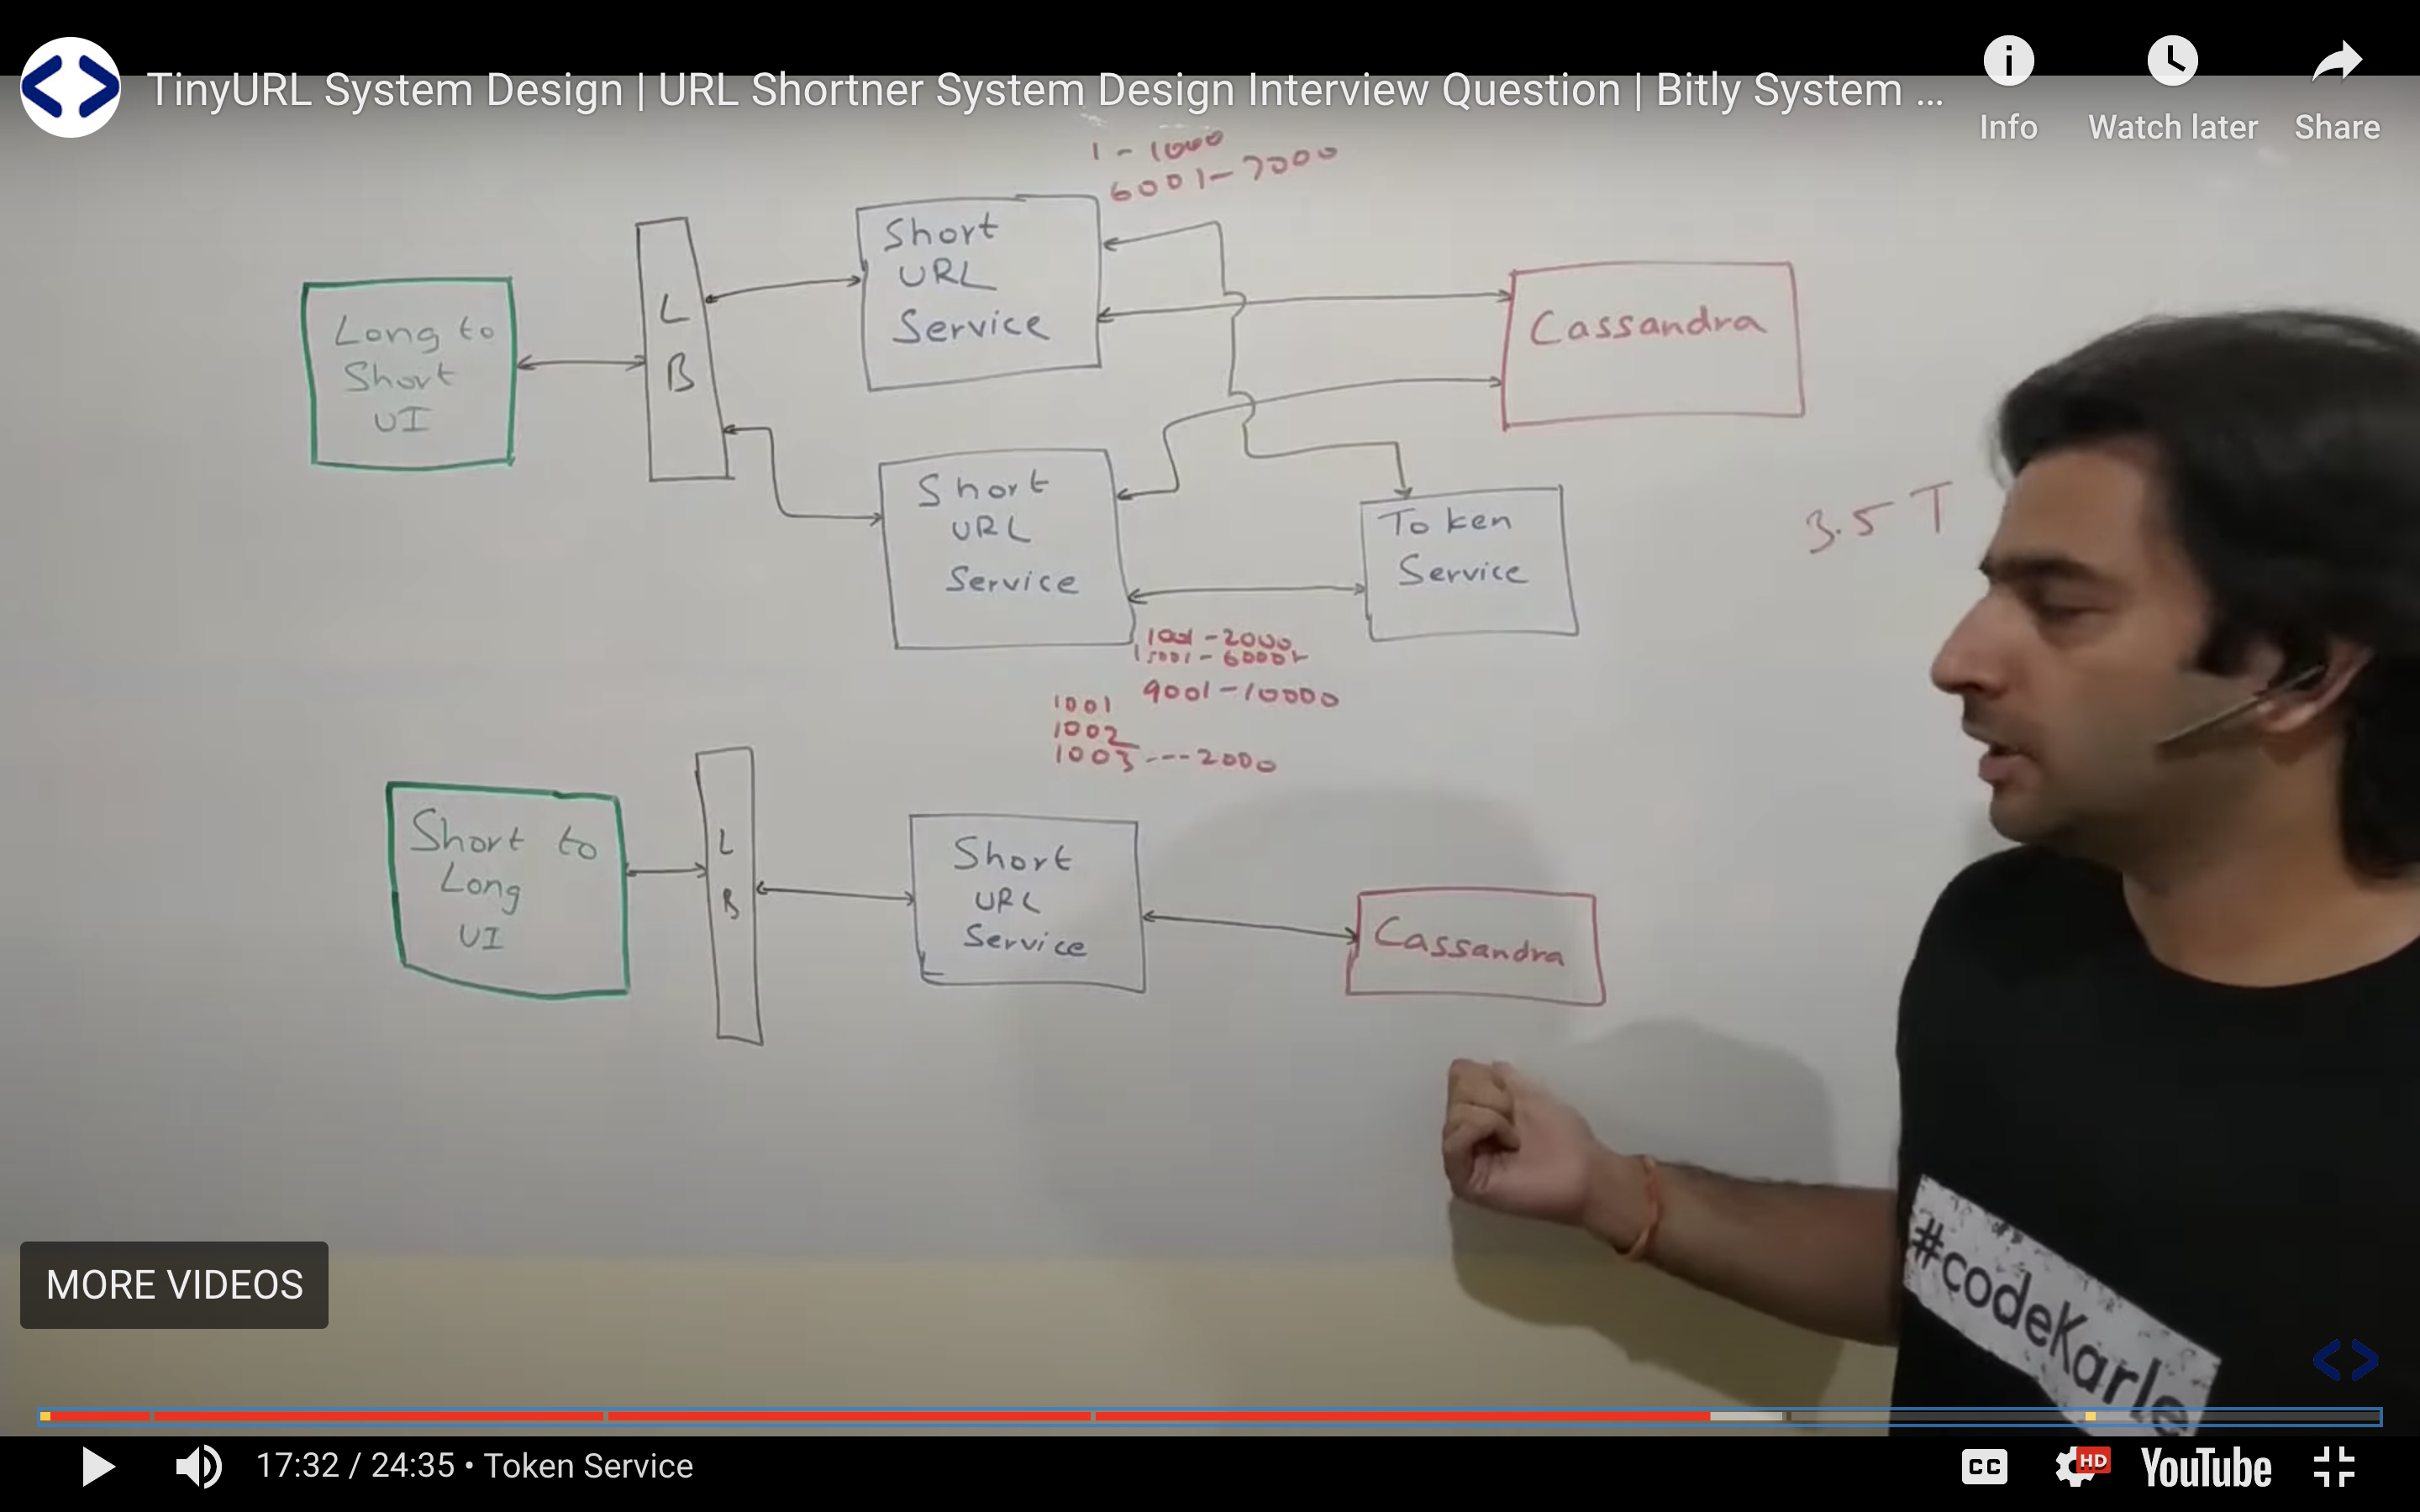 TinyURL System Design | URL Shortner System Design Interview Question | Bitly System ...
Info
Watch later
Share
1 - 1000
6001 - 7000
Short
URL
Service
L
B
Long to
Short
UI
Cassandra
Short
URL
Service
Token
Service
3.5 T
1001 - 2000
5001 - 6000
9001 - 10000
1001
1002
1003 --- 2000
Short to
Long
UI
L
B
Short
URL
Service
Cassandra
MORE VIDEOS
#codeKarle
17:32 / 24:35 • Token Service
CC
HD
YouTube